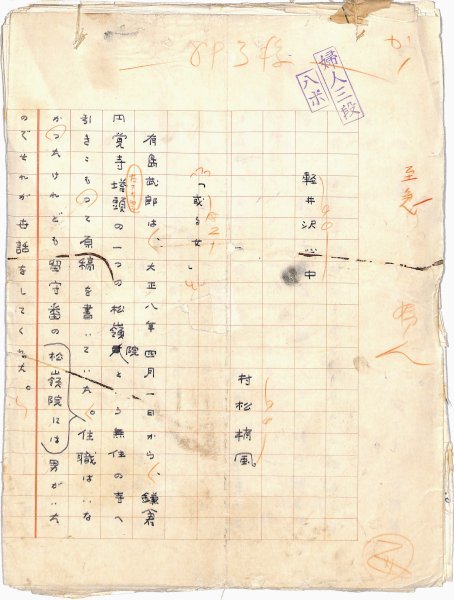 至急
婦人三段
八ポ
軽井沢心中
村松梢風
一
「或る女」
有島武郎は、大正八年四月一日から、鎌倉
円覚寺塔頭の一つの松嶺院という無住の寺へ
引きこもって原稿を書いていた。住職はいな
かったけれども留守番の松嶺院には男がいた
のでそれが世話をしてくれた。